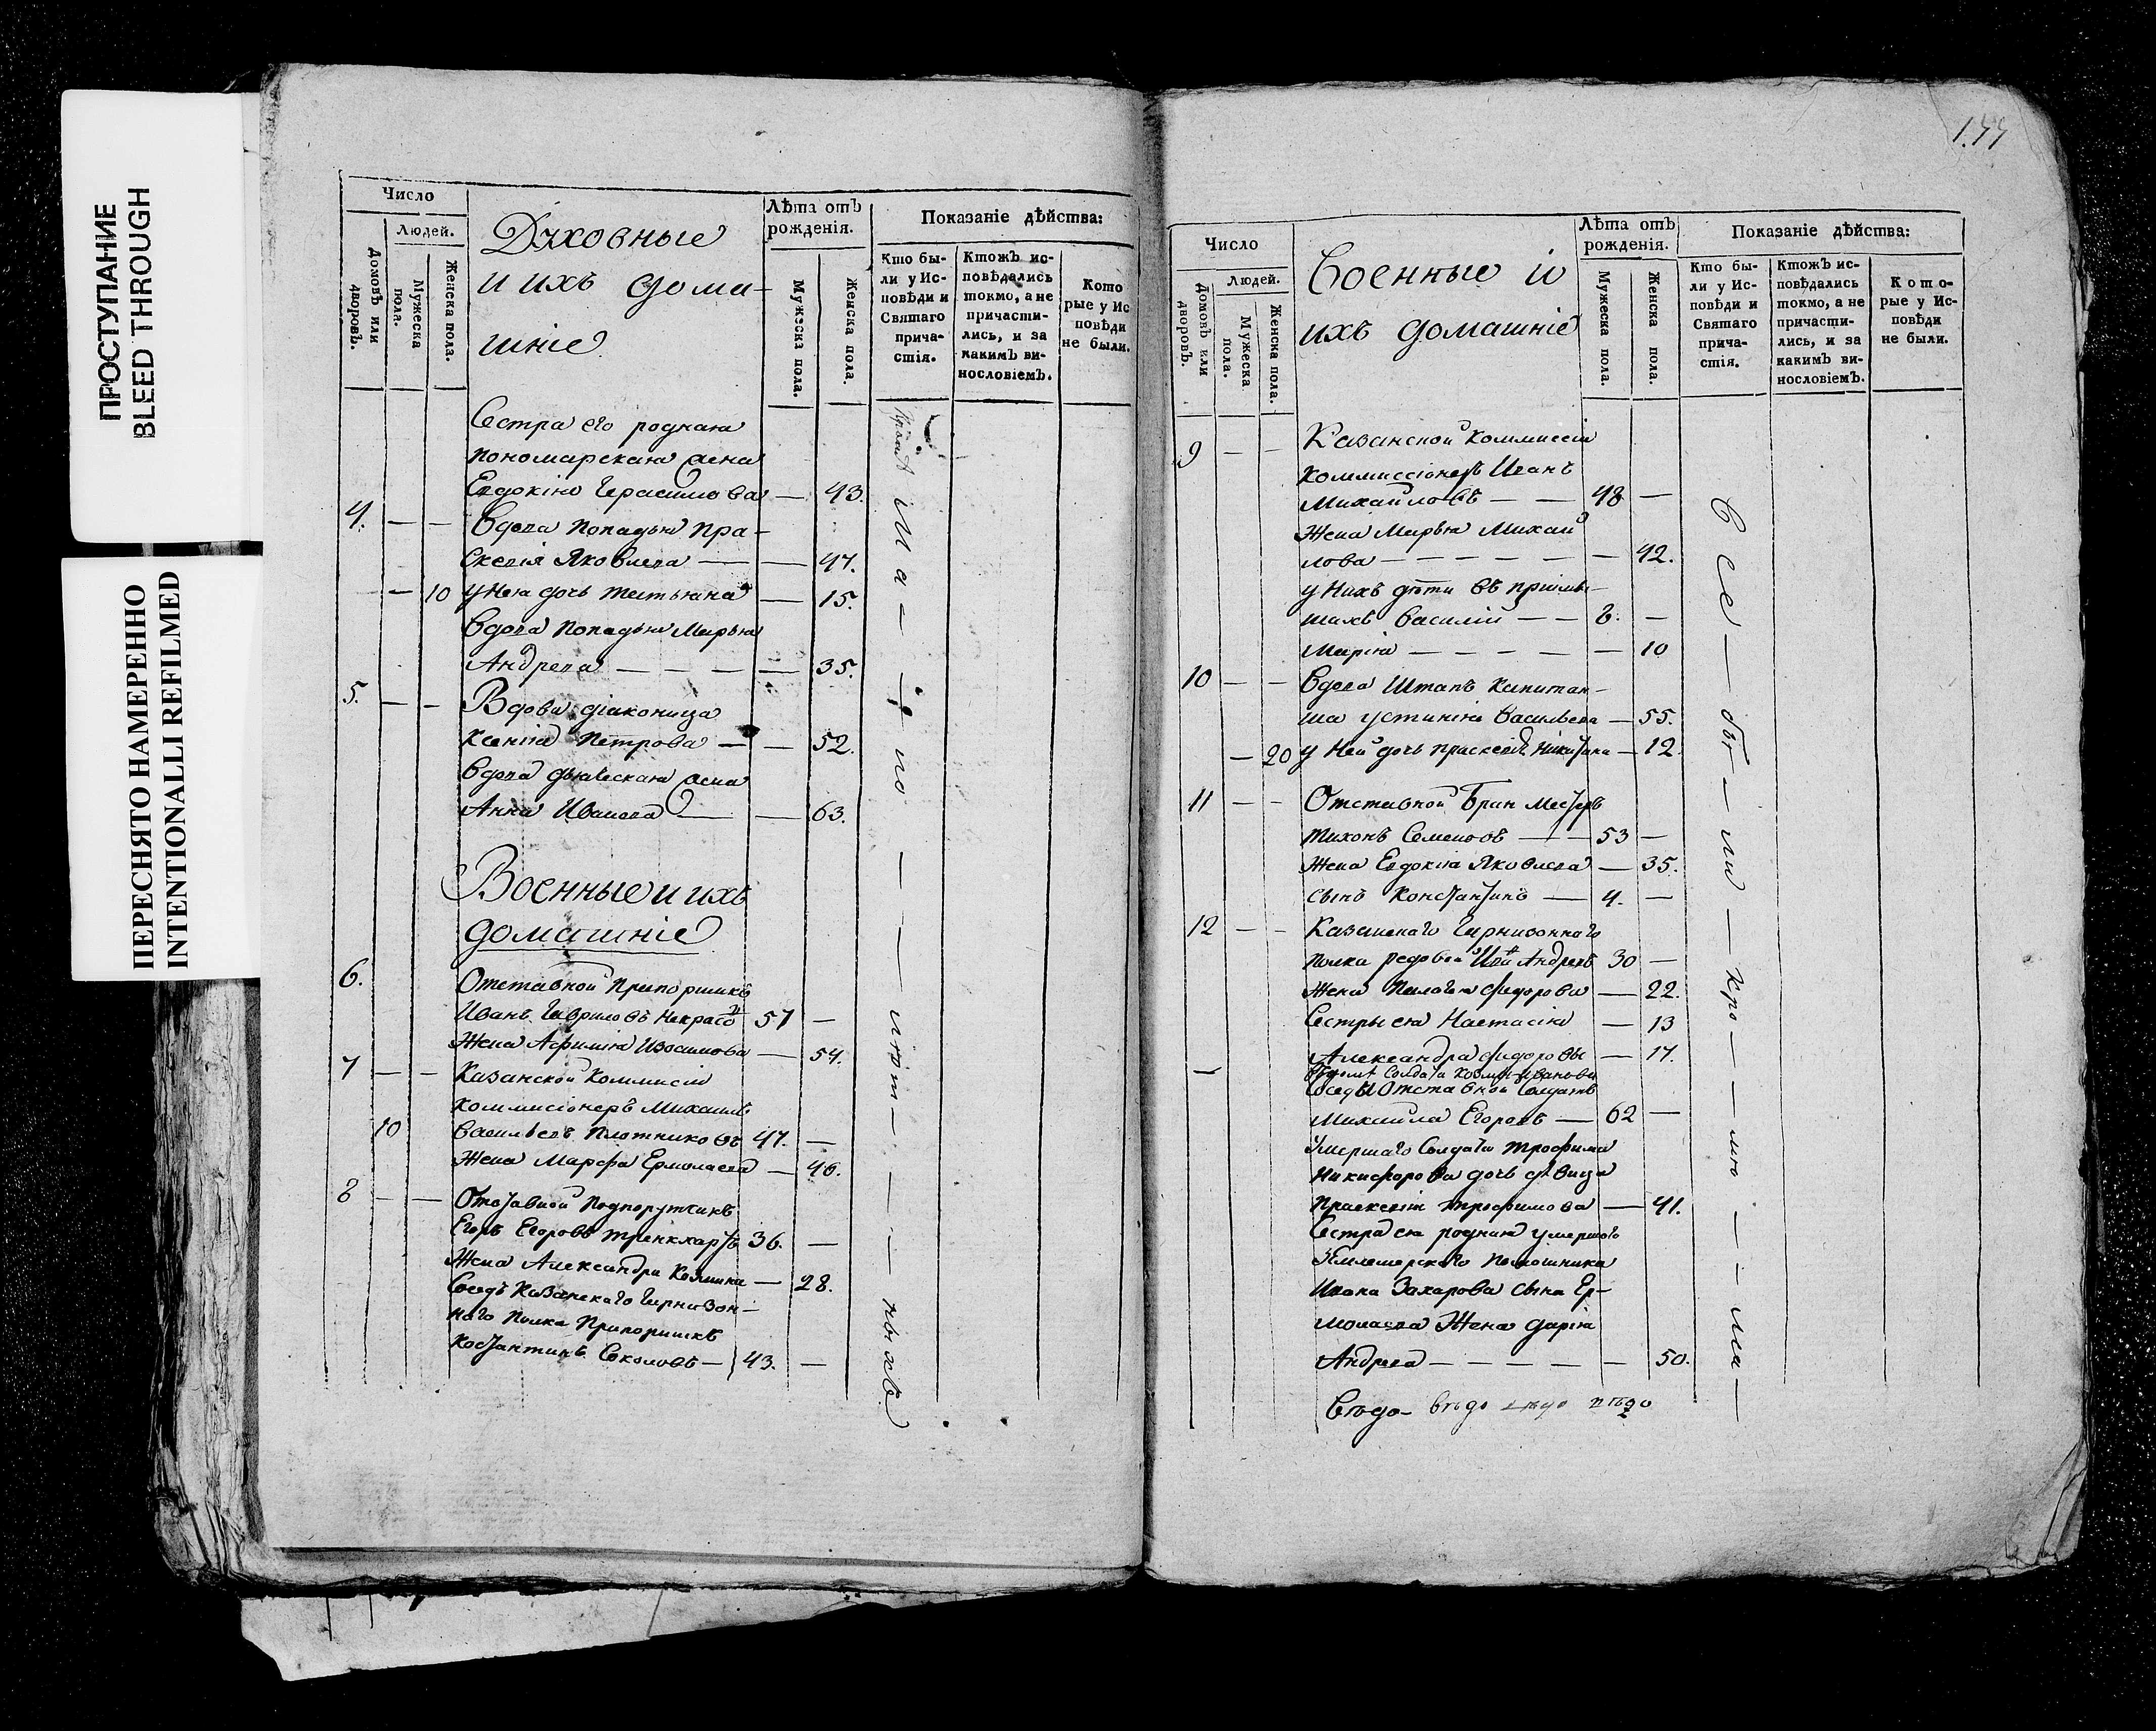 ПРОСТУПАНИЕ
BLEED THROUGH
ПЕРЕСНЯТО НАМЕРЕННО
INTENTIONALLI REFILMED
Число
Людей.
Домовъ или дворовъ.
Мужеска пола.
Женска пола.
Духовные
и ихъ дома-
шніе
Лѣта отъ рожденія.
Мужеска пола.
Женска пола.
Показаніе дѣйства:
Кто бы-
ли у Ис-
повѣди и
Святаго
прича-
стія.
Ктожъ ис-
повѣдались
токмо, а не
причасти-
лись, и за
какимъ ви-
нословіемъ.
Кото
рые у Ис
повѣди
не были.
Сестра его родная
пономарская жена
Евдокія Герасимова — 43.
4. — — Вдова попадья Пра-
скевія Яковлева — — 47.
— 10 у нея дочь Татьяна — 15.
Вдова попадья Марья
Андреева — — — — 35.
5. — — Вдова діаконица
Ксенія Петрова — — 52.
Вдова дьяческая жена
Анна Иванова — — 63.
Военные и ихъ
домашніе
6. Отставной Прапорщикъ
Иванъ Гавриловъ Некрасо 57 —
Жена Афимія Изосимова — 54.
7 — — Казанской Коммисіи
Коммисіонеръ Михаила
10 Васильевъ Плотниковъ 47. —
Жена Марфа Ермолаева — 46.
8 — — Отставной Подпорутчикъ
Егоръ Егоровъ 36. —
Жена Александра — 28.
Соседъ Казанскаго Гарнизон-
наго Полка Прапорщикъ
Костантинъ Соколовъ — 43. —
Число
Людей.
Домовъ или дворовъ.
Мужеска пола.
Женска пола.
Военные и
ихъ домашніе
Лѣта отъ рожденія.
Мужеска пола.
Женска пола.
Показаніе дѣйства:
Кто бы-
ли у Ис-
повѣди и
Святаго
прича-
стія.
Ктожъ ис-
повѣдались
токмо, а не
причасти-
лись, и за
какимъ ви-
нословіемъ.
Кото-
рые у Ис-
повѣди
не были.
9 — — Казанской Коммиссіи
Коммиссіонеръ Иванъ
Михайловъ — — 48 —
Жена Марья Михай
лова — — — — — — 42.
у нихъ дѣти въ пріимы-
шахъ Василій — — 8. —
Марія — — — — — — 10
10 — — Вдова Штапъ Капитан-
ша Устинія Васильева — 55.
— 20 у ней дочь Праскевія — 12.
11 — — Отставной
Тихонъ Семеновъ — — 53 —
Жена Евдокія Яковлева — 35.
Сынъ Константинъ — 4. —
12 — — Казанскаго Гарнизоннаго
полка редовой Андреевъ 30 —
Жена Пелагея Федорова — 22.
Сестры ея Настасія — 13
Александра Федоровы — 17.
— Солдата Козмы Иванова
Соседъ Отставной Солдатъ
Михаила Егоровъ — 62 —
Умершаго Солдата Трофима
Никифорова дочь девица
Праскевія Трофимова — 41.
Сестра ея родная умершаго
Землемерскаго Помошника
Ивана Захарова сына Ер-
молаева Жена Дарія
Андреева — — — — — — 50.